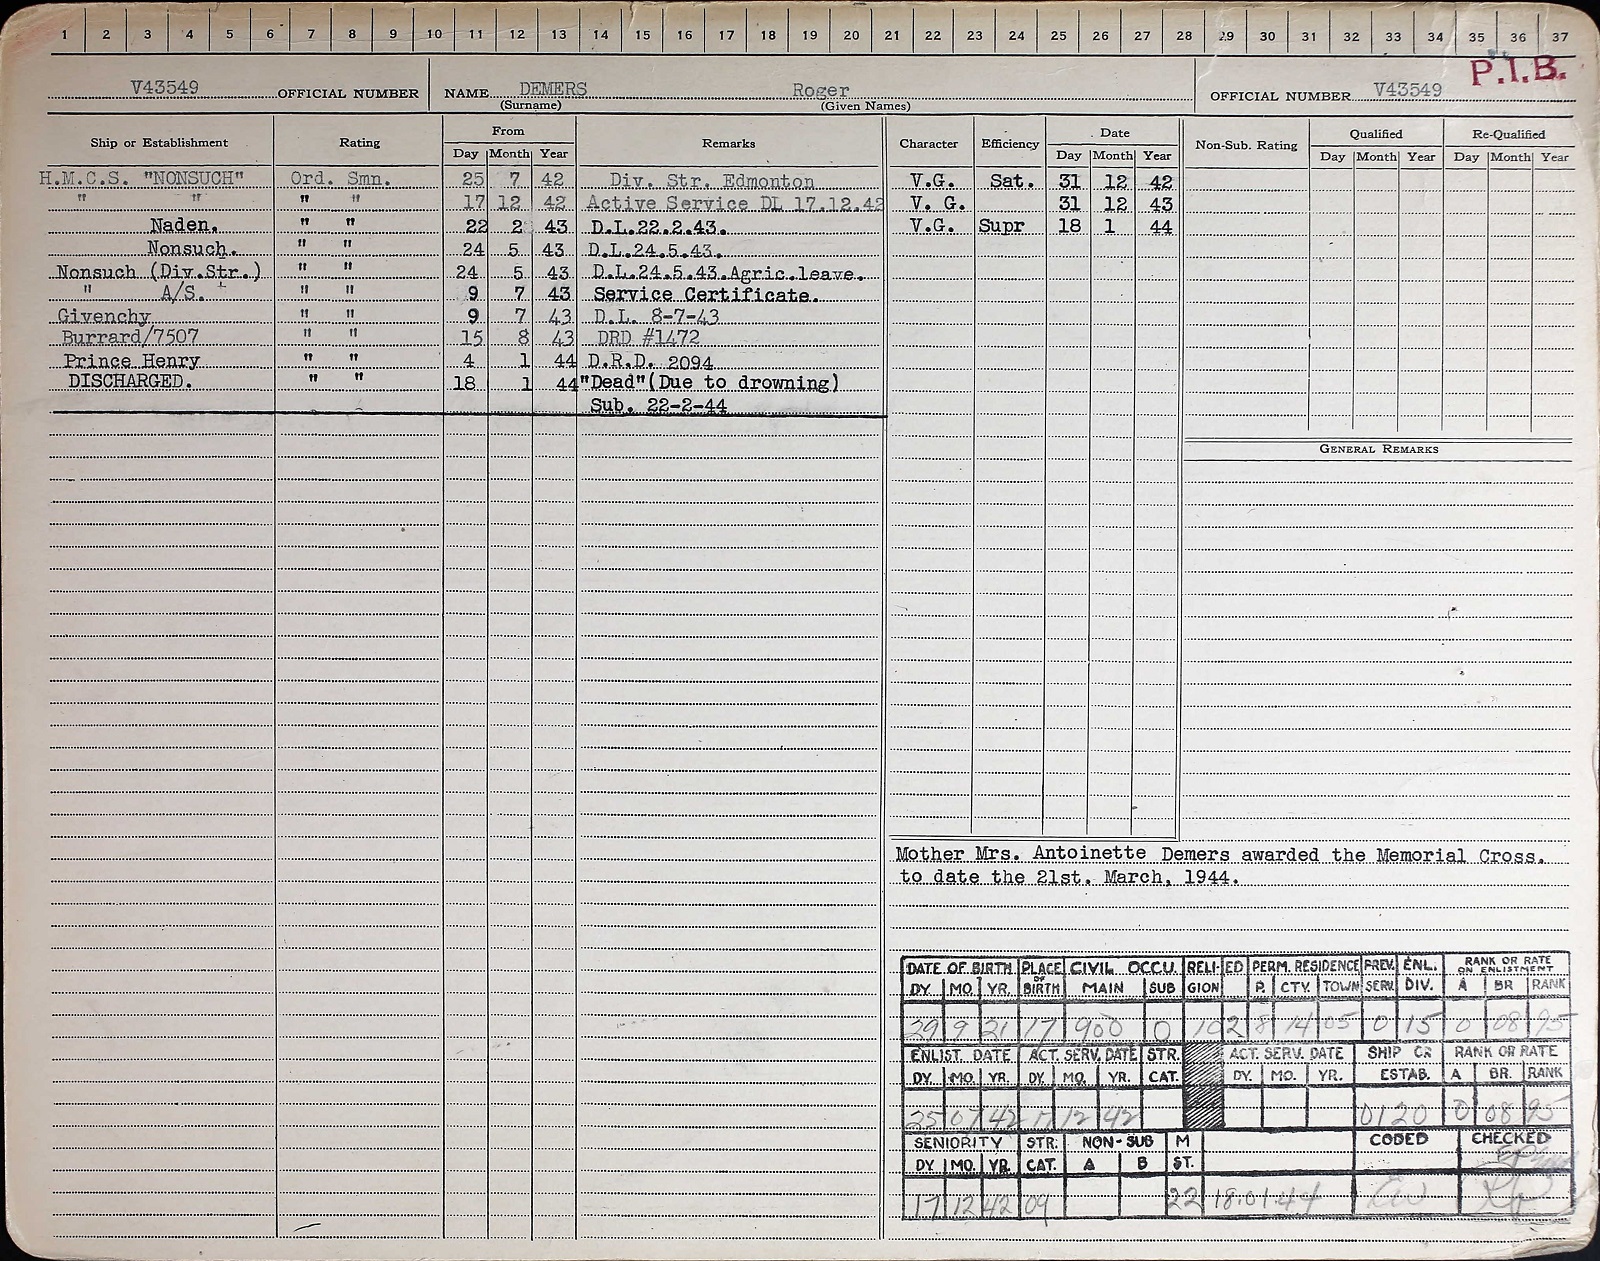 1 2 3 4 5 6 7 8 9 10 11 12 13 14 15 16 17 18 19 20 21 22 23 24 25 26 27 28 29 30 31 32 33 34 35 36 37
P.I.B.
V43549 OFFICIAL NUMBER NAME DEMERS Roger OFFICIAL NUMBER V43549
(Surname) (Given Names)
Ship or Establishment Rating From Remarks Character Efficiency Date Non-Sub. Rating Qualified Re-Qualified
Day Month Year Day Month Year Day Month Year Day Month Year
H.M.C.S. "NONSUCH" Ord. Smn. 25 7 42 Div. Str. Edmonton V.G. Sat. 31 12 42
" " " " 17 12 42 Active Service DL 17.12.42 V. G. 31 12 43
Naden. " " 22 2 43 D.L.22.2.43. V.G. Supr 18 1 44
Nonsuch. " " 24 5 43 D.L.24.5.43.
Nonsuch (Div.Str.) " " 24 5 43 D.L.24.5.43.Agric.leave.
" A/S. " " 9 7 43 Service Certificate.
Givenchy " " 9 7 43 D.L. 8-7-43
Burrard/7507 " " 15 8 43 DRD #1472
Prince Henry " " 4 1 44 D.R.D. 2094
DISCHARGED. " " 18 1 44 "Dead"(Due to drowning)
Sub. 22-2-44
GENERAL REMARKS
Mother Mrs. Antoinette Demers awarded the Memorial Cross.
to date the 21st. March, 1944.
DATE OF BIRTH PLACE OF BIRTH CIVIL OCCU. RELIGION ED PERM. RESIDENCE PREV. SERV. ENL. DIV. RANK OR RATE ON ENLISTMENT
DY. MO. YR. MAIN SUB P. CTY. TOWN A BR RANK
29 9 21 17 900 0 10 2 8 14 05 0 15 0 08 95
ENLIST. DATE ACT. SERV. DATE STR. CAT. ACT. SERV. DATE SHIP OR ESTAB. RANK OR RATE
DY. MO. YR. DY. MO. YR. DY. MO. YR. A BR. RANK
25 07 42 17 12 42 0120 0 08 95
SENIORITY STR. CAT. NON-SUB M ST. CODED CHECKED
DY. MO. YR. A B
17 12 42 09 22 18.01.44